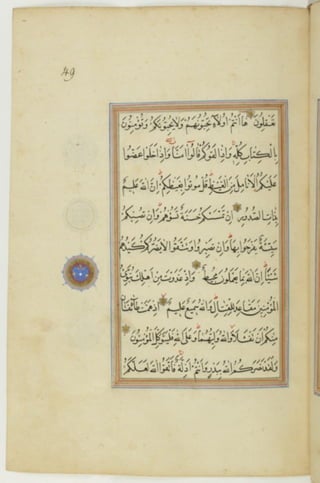 49
تعقلون هاأنتم اولاء تحبونهم ولا يحبونكم وتؤمنون
بالكتاب كله واذا لقوكم قالوا امنا واذا خلوا عضوا
عليكم الانامل من الغيظ قل موتوا بغيظكم ان الله عليم
بذات الصدور ان تمسسكم حسنة تسؤهم وان تصبكم
سيئة يفرحوا بها وان تصبروا وتتقوا لا يضركم كيدهم
شيئا ان الله بما يعملون محيط واذ غدوت من اهلك تبوئ
المؤمنين مقاعد للقتال والله سميع عليم اذ همت طائفتان
منكم ان تفشلا والله وليهما وعلى الله فليتوكل المؤمنون
ولقد نصركم الله ببدر وانتم اذلة فاتقوا الله لعلكم